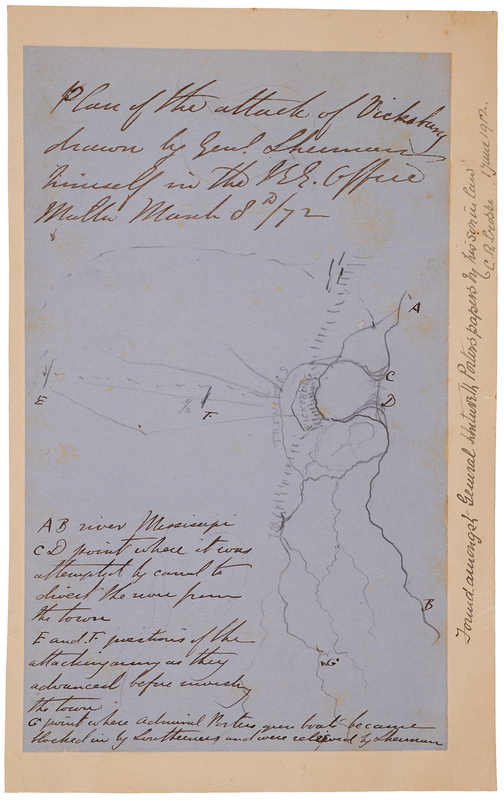 Plan of the attack of Vicksburg
drawn by Genl Sherman
himself in the R.E. Office
Malta March 8th/72
A
C
D
E
F
TRENCHES
VICKSBURG
B
G
A B river Missisipi
C D point where it was
attempted by canal to
divert the river from
the town
E and F positions of the
attacking army as they
advanced before investing
the town
G point where Admiral Porters gun boats became
blocked in by Southerners and were relieved by Sherman
Found amongst General Whitworth Porters papers by his son in law
1 June 1912.